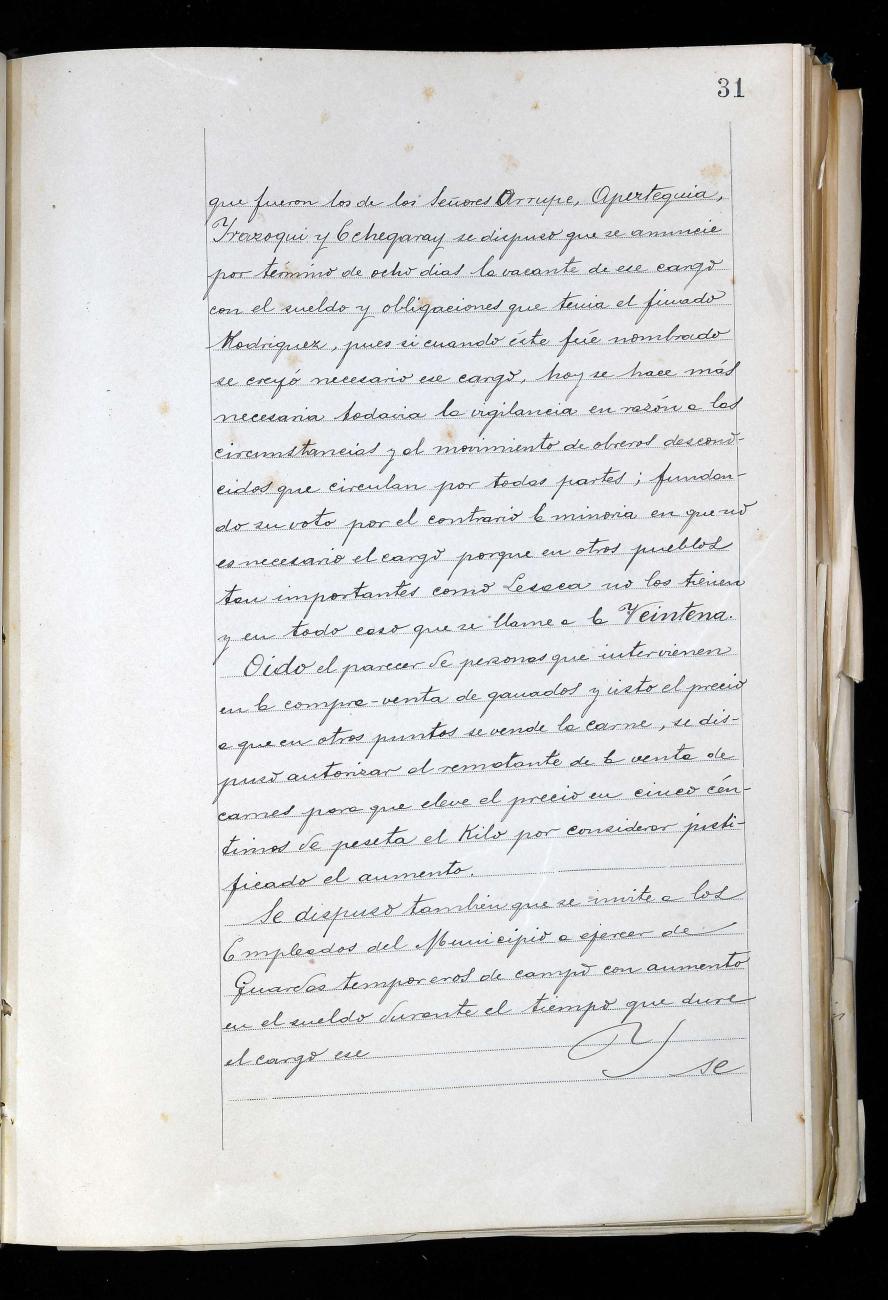 31
que fueron los de los Señores Arrupe, Aperteguia,
Irazoqui y Echegaray se dispuso que se anuncie
por termino de ocho dias la vacante de ese cargo
con el sueldo y obligaciones que tenia el finado
Rodriguez, pues si cuando éste fué nombrado
se creyó necesario ese cargo, hoy se hace más
necesaria todavia la vigilancia en razón a las
circunstancias y al movimiento de obreros descono-
cidos que circulan por todas partes; fundan-
do su voto por el contrario la minoria en que no
es necesario el cargo porque en otros pueblos
tan importantes como Lesaca no los tienen
y en todo caso que se llame a la Veintena.
Oido el parecer de personas que intervienen
en la compra-venta de ganados y visto el precio
a que en otros puntos se vende la carne, se dis-
puso autorizar al rematante de la venta de
carnes para que eleve el precio en cinco cén-
timos de peseta el Kilo por considerar justi-
ficado el aumento.
Se dispuso también que se invite a los
Empleados del Municipio a ejercer de
Guardas temporeros de campo con aumento
en el sueldo durante el tiempo que dure
el cargo ese
se